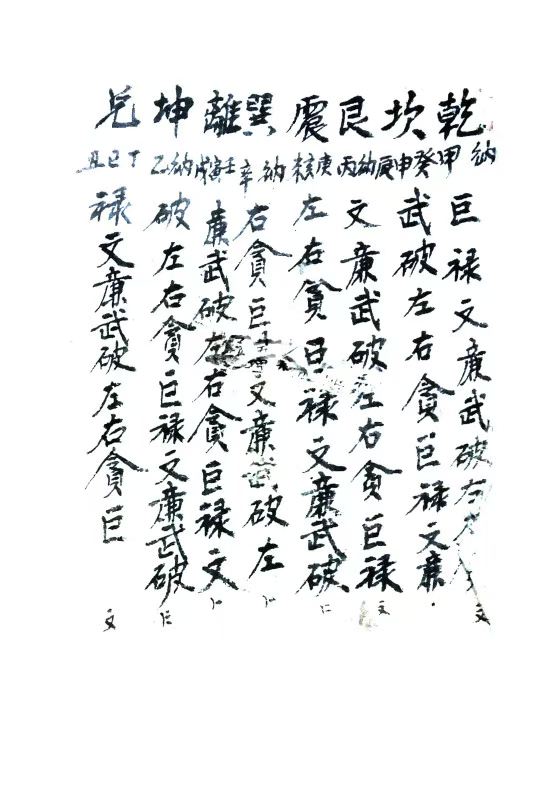 乾納甲巨禄文廉武破左文
坎癸申武破左右貪巨禄文廉
艮納丙文廉武破左右貪巨禄文
震庚亥左右貪巨禄文廉武破
巽納辛右貪巨文廉武破左
離壬寅戌廉武破左右貪巨禄文
坤納乙破左右貪巨禄文廉武破
兌丁巳丑禄文廉武破左右貪巨文